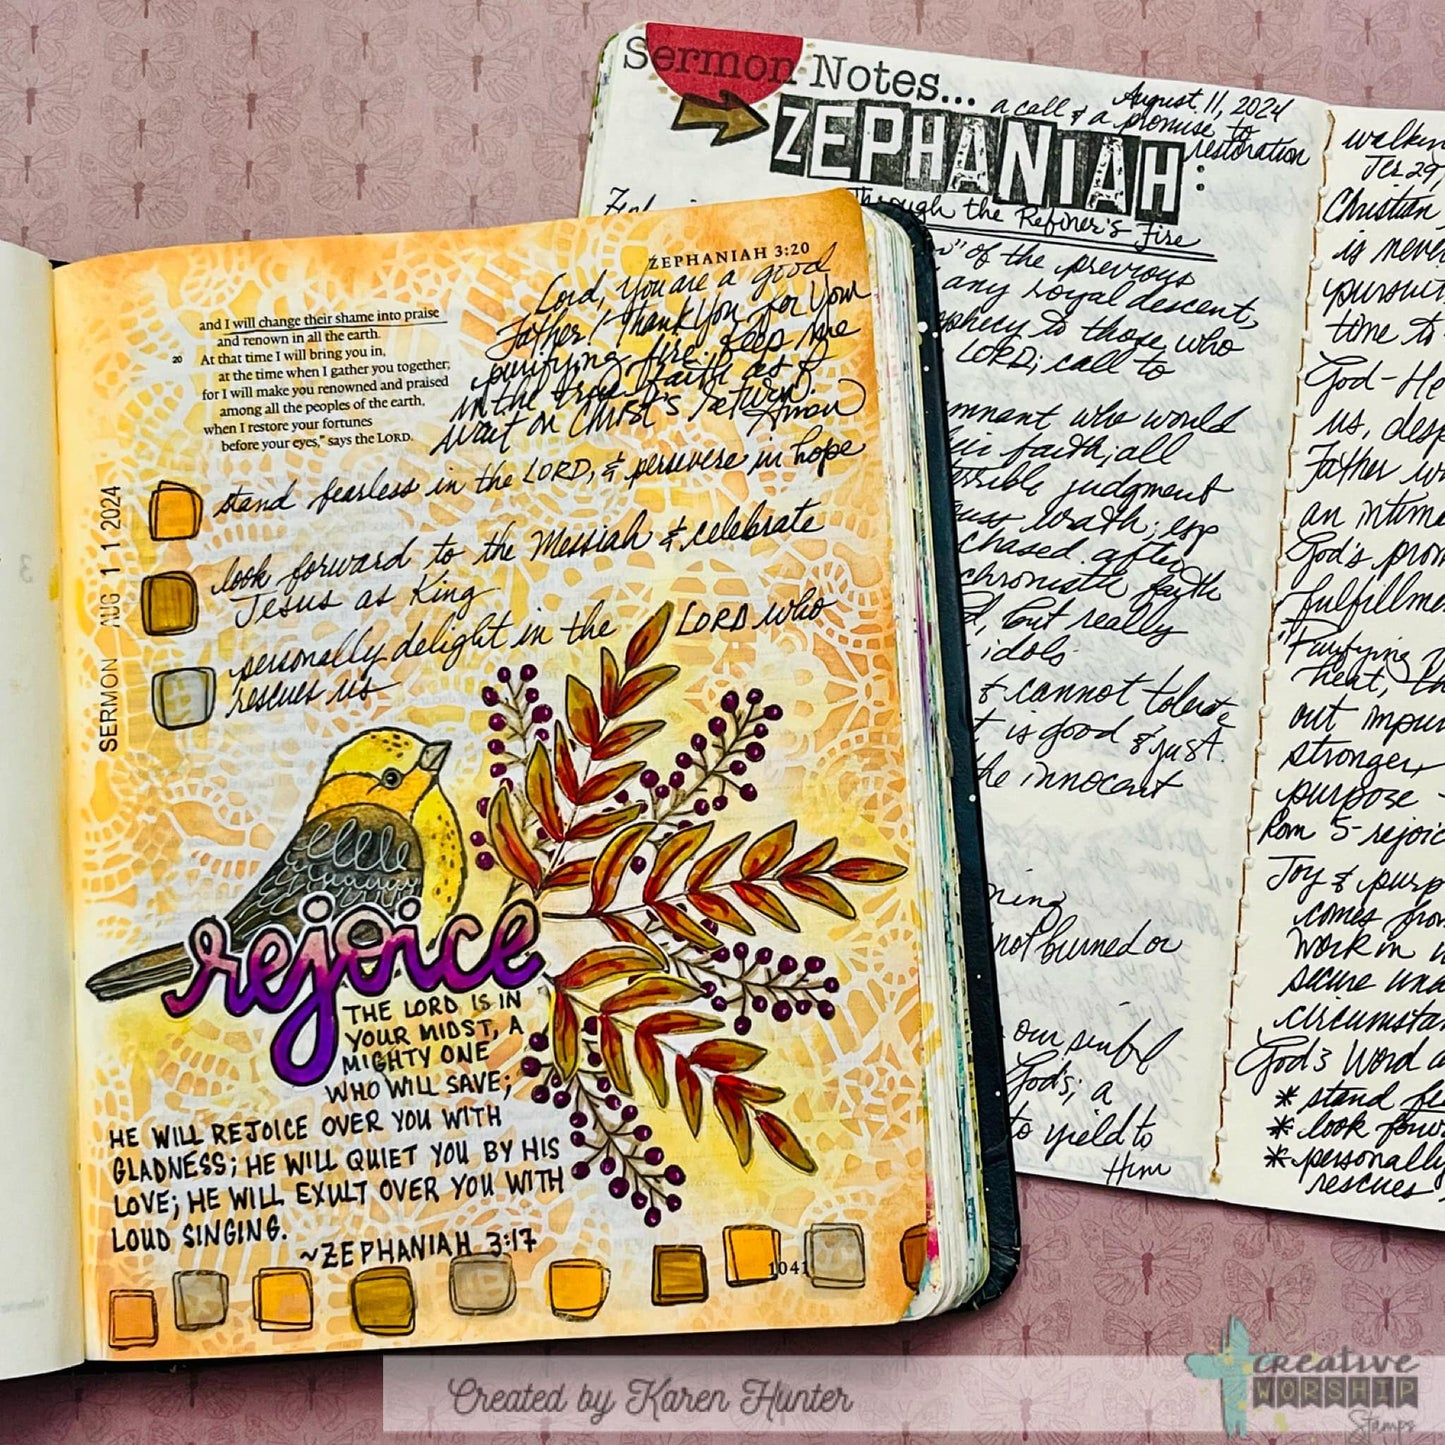 ZEPHANIAH 3:20
and I will change their shame into praise
and renown in all the earth.
20 At that time I will bring you in,
at the time when I gather you together;
for I will make you renowned and praised
among all the peoples of the earth,
when I restore your fortunes
before your eyes," says the LORD.
Lord, You are a good
Father! Thank You for Your
purifying fire. Keep me
in the true faith as I
wait on Christ's return.
Amen
SERMON AUG 11 2024
stand fearless in the LORD, & persevere in hope
look forward to the Messiah & celebrate
Jesus as King
personally delight in the LORD who
rescues us
rejoice
THE LORD IS IN
YOUR MIDST, A
MIGHTY ONE
WHO WILL SAVE;
HE WILL REJOICE OVER YOU WITH
GLADNESS; HE WILL QUIET YOU BY HIS
LOVE; HE WILL EXULT OVER YOU WITH
LOUD SINGING.
~ZEPHANIAH 3:17
1041
Sermon Notes...
August 11, 2024
ZEPHANIAH:
a call & a
promise to
restoration
Through the Refiner's Fire
of the previous
any royal descent,
to those who
LORD; call to
who would
faith; all
judgment
wrath; esp
chased after
faith
but really
idols
& cannot tolerate
is good & just.
the innocent
not burned or
our sinful
God's; a
to yield to
Him
Christian
is never
time to
God-He
us, desp
Father
an intima
God's prom
fulfillme
"Purifying
heat,
out impur
stronger,
purpose
Rom 5-rejoic
Joy & purp
comes from
work in
secure
circumstan
God's Word
* stand fe
* look forw
* personally
rescues
Created by Karen Hunter
creative
WORSHIP
Stamps